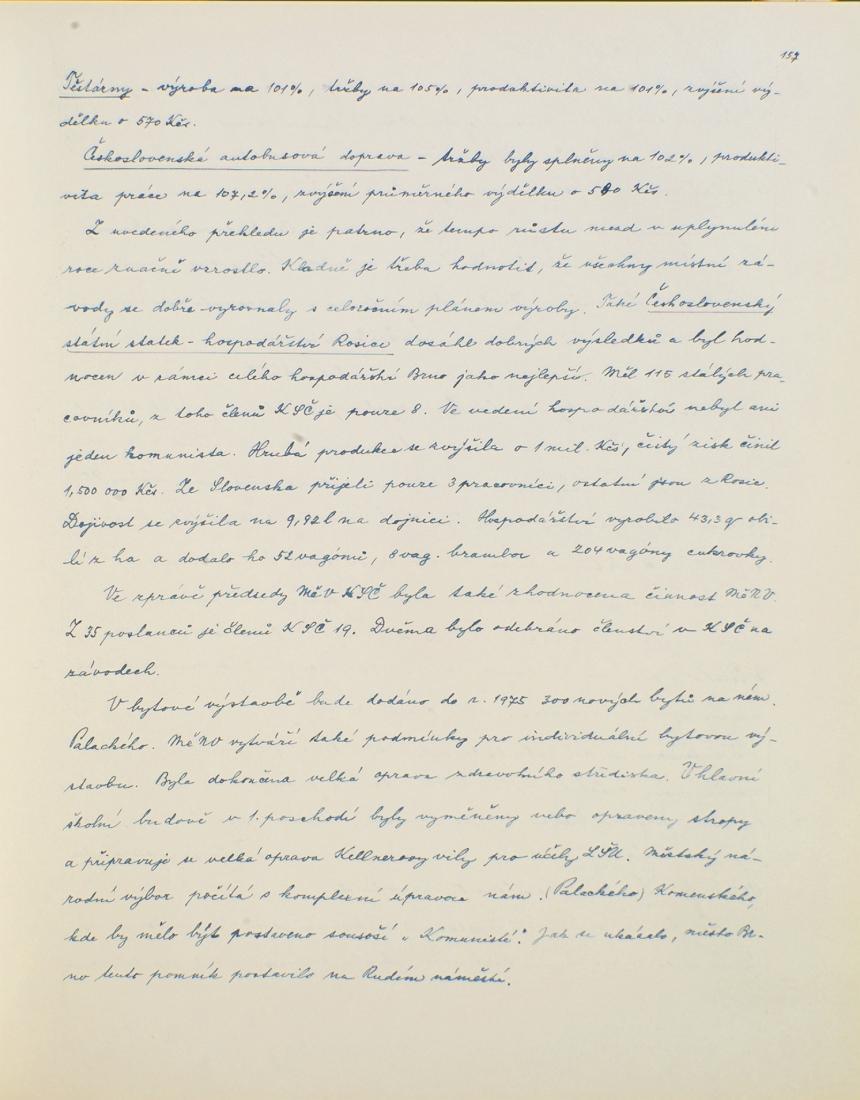 157
Těstárny - výroba na 101%, tržby na 105%, produktivita na 101%, zvýšení vý-
dělku o 570 Kčs.
Československá autobusová doprava - tržby byly splněny na 102%, produkti-
vita práce na 107,2%, zvýšení průměrného výdělku o 500 Kčs.
Z uvedeného přehledu je patrno, že tempo růstu mezd v uplynulém
roce značně vzrostlo. Kladně je třeba hodnotit, že všechny místní zá-
vody se dobře vyrovnaly s celoročním plánem výroby. Také Československý
státní statek - hospodářství Rosice dosáhl dobrých výsledků a byl hod-
nocen v rámci celého hospodářství Brno jako nejlepší. Měl 115 stálých pra-
covníků, z toho členů KSČ je pouze 8. Ve vedení hospodářství nebyl ani
jeden komunista. Hrubá produkce se zvýšila o 1 mil. Kčs, čistý zisk činil
1,500 000 Kčs. Ze Slovenska přijeli pouze 3 pracovníci, ostatní jsou z Rosic.
Dojivost se zvýšila na 9,92 l na dojnici. Hospodářství vyrobilo 43,3 q obi-
lí z ha a dodalo ho 52 vagónů, 8 vag. brambor a 204 vagóny cukrovky.
Ve zprávě předsedy MěV KSČ byla také zhodnocena činnost MěNV.
Z 35 poslanců je členů KSČ 19. Dvěma bylo odebráno členství v KSČ na
závodech.
V bytové výstavbě bude dodáno do r. 1975 300 nových bytů na nám.
Palackého. MěNV vytváří také podmínky pro individuální bytovou vý-
stavbu. Byla dokončena velká oprava zdravotního střediska. V hlavní
školní budově v 1. poschodí byly vyměněny nebo opraveny stropy
a připravuje se velká oprava Kellnerovy vily pro účely LŠU. Městský ná-
rodní výbor počítá s komplexní úpravou nám. (Palackého) Komenského,
kde by mělo být postaveno sousoší „Komunisté". Jak se ukázalo, město Br-
no tento pomník postavilo na Rudém náměstí.